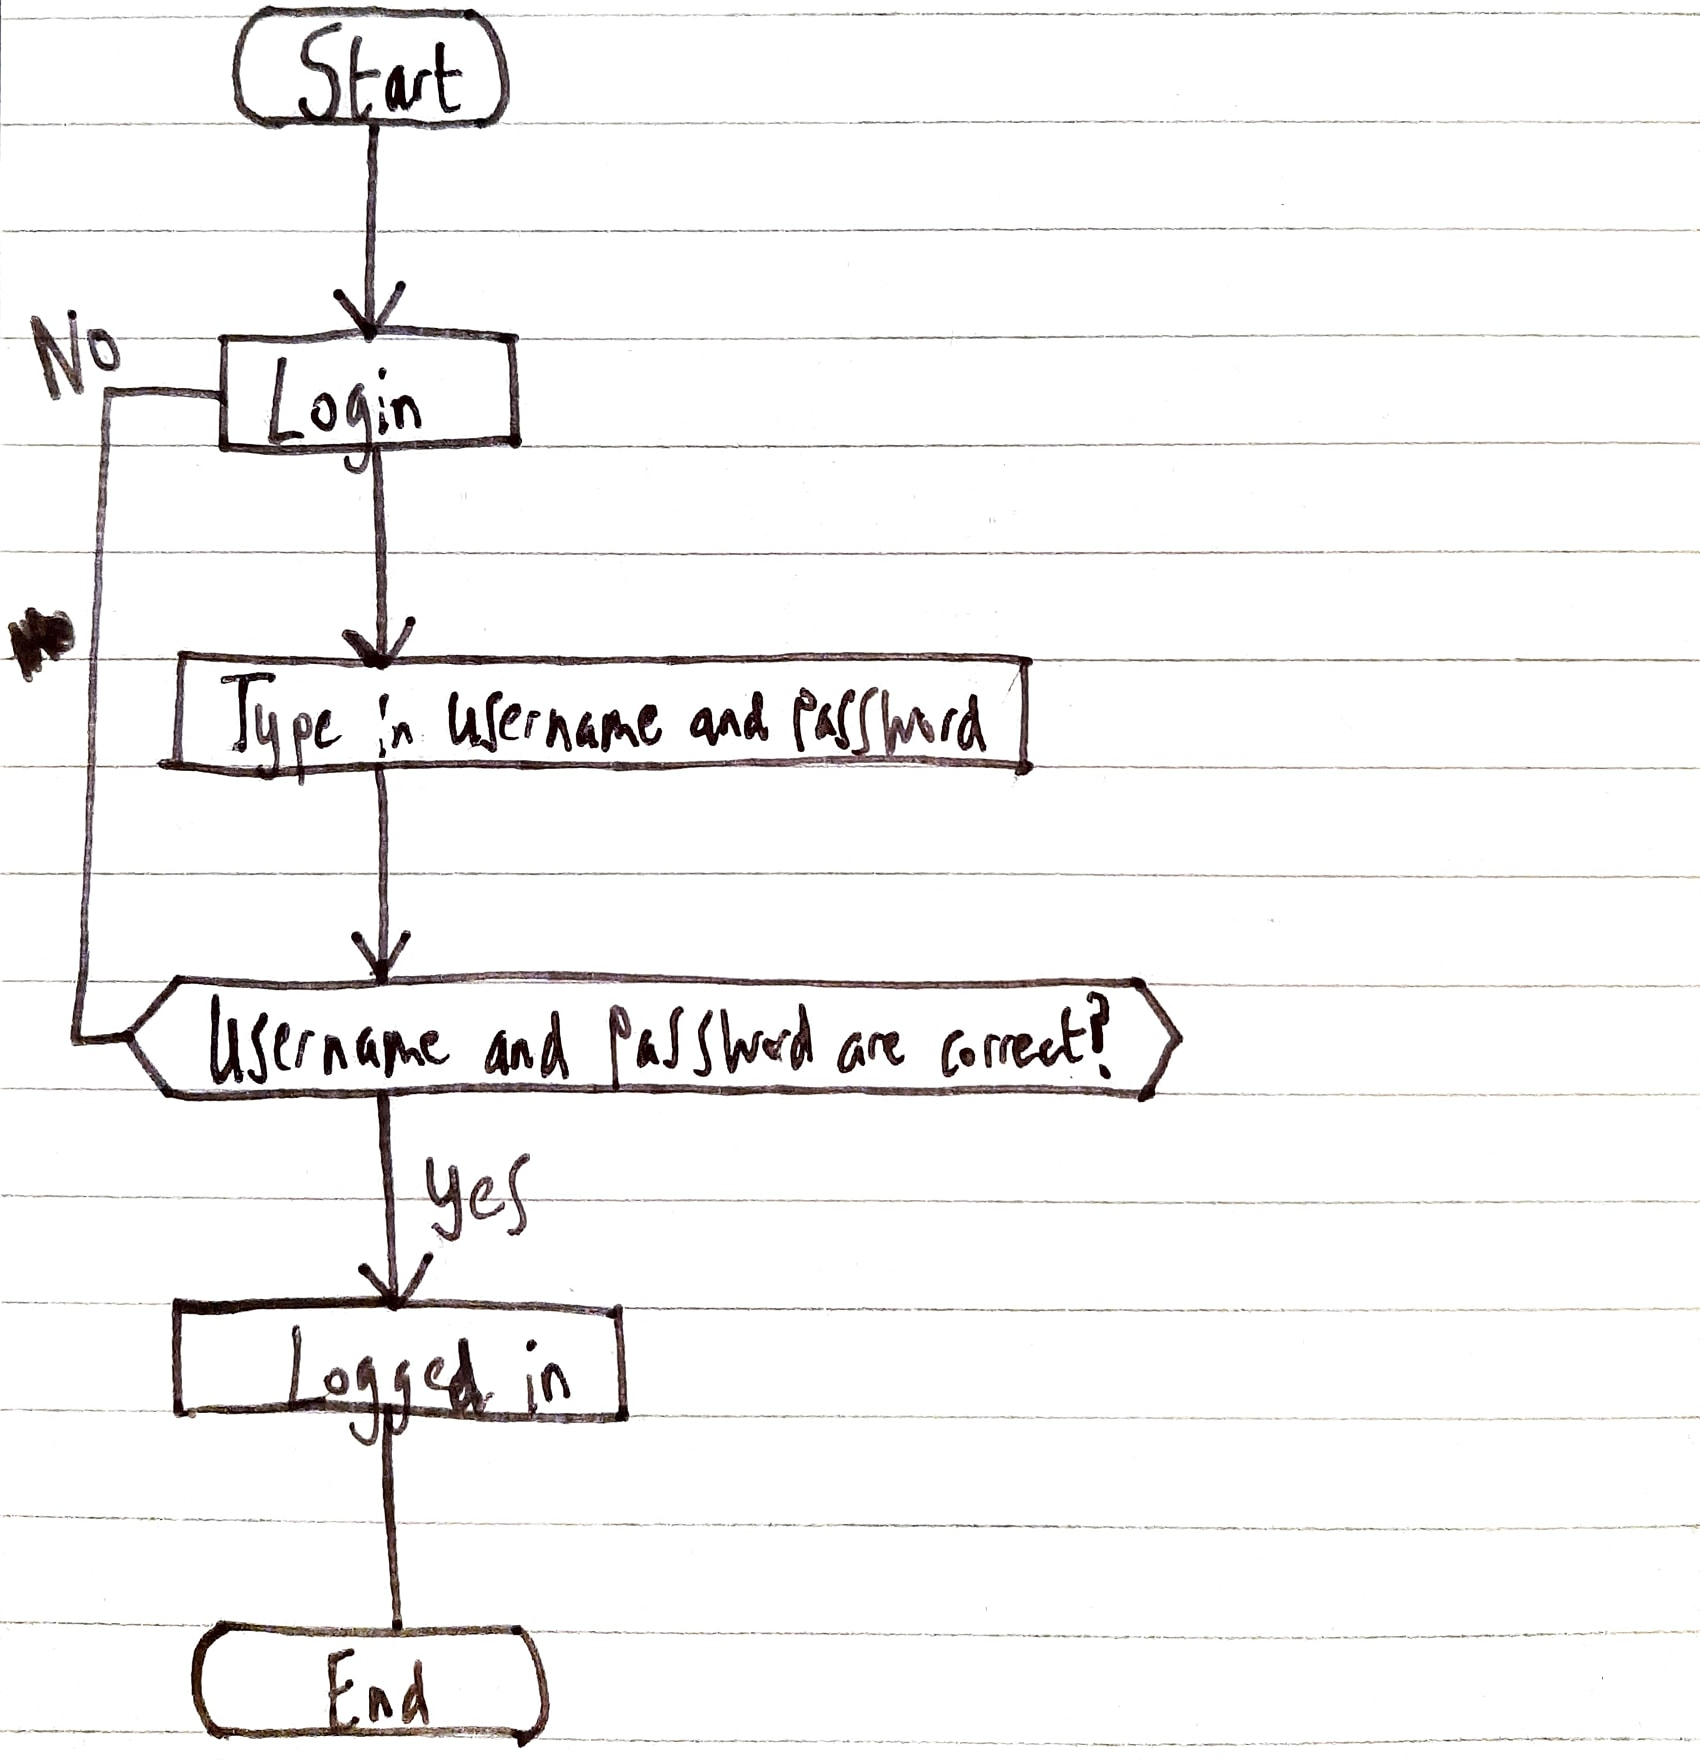 Start
No
Login
Type in username and password
Username and password are correct?
yes
Logged in
End